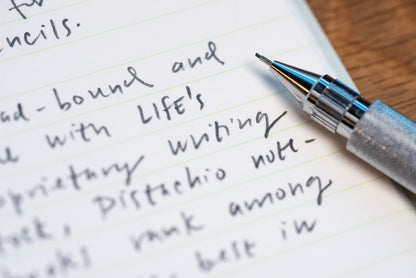 for
ncils.
ad-bound and
e with LIFE's
oprietary writing
ock, Pistachio note-
ooks rank among
e best in